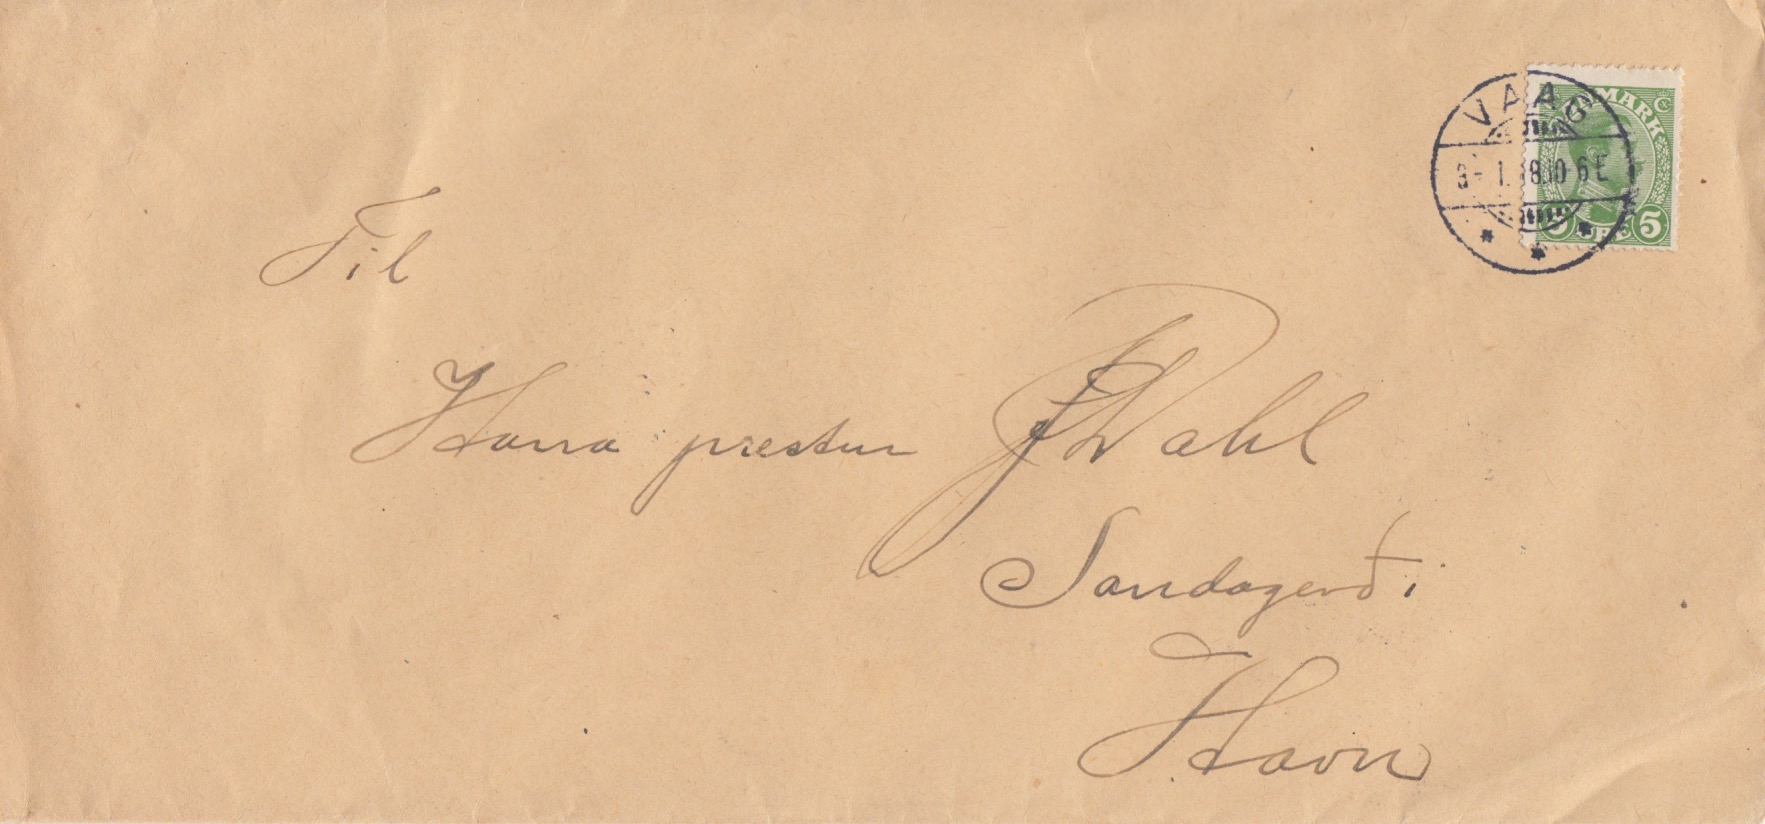 VAAG
3-1.18.10-6E
DANMARK
5 ØRE 5
Til
Harra prestur J Dahl
Sandagerði
Havn